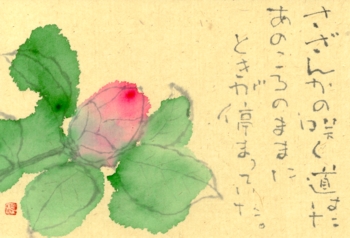 さざんかの咲く道はただ
あのころのままに
ときが
停まっていた。